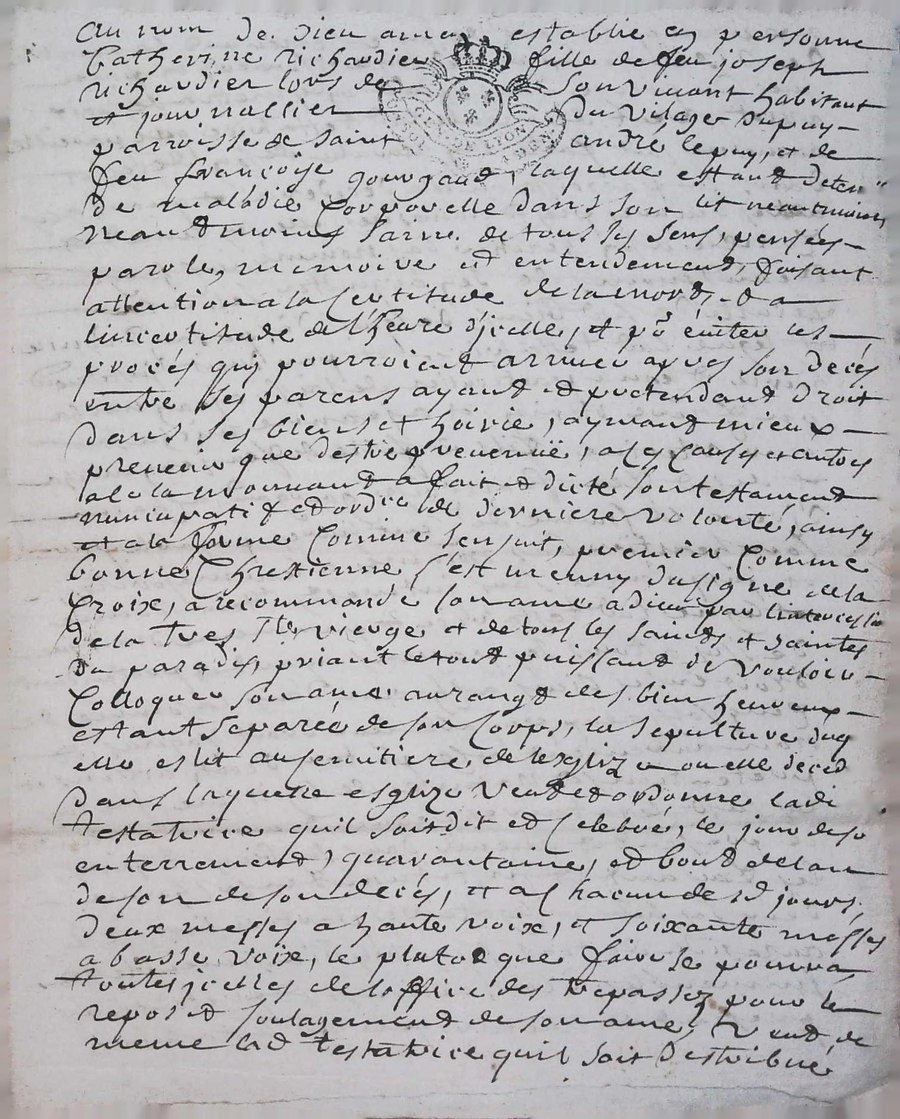 Au nom de dieu amen establie en personne
Catherine richaudier fille de feu joseph
richaudier lors de son vivant habitant
et journallier du vilage dupuy
parroisse de saint andré lepuy, et de
feu françoise gourgaud, laquelle estant deten"
de maladie Corporelle dans son lit neantmoins
neandmoins saine de tous ses sens, pensées
parole, memoire et entendement, faisant
attention a la Certitude de la mord, et a
lincertitude de l'heure d'jcelle, et pr éuiter les
procés quy pourroient arriuer apres son decés
entre ses parens ayant et pretendant droit
dans ses biens et hoirie, aymant mieux
preuenir que destre preuenuë, a Ces Causes et autres
a la mouuant a fait et dicté son testament
nuncupatif et ordre de derniere volonté, ainsy
et a la forme Comme sensuit, premier Comme
bonne Chrestienne s'est muny du signe de la
Croix, a recommandé son ame a dieu par lintercession
de la tres Ste vierge et de tous les saints et saintes
du paradis, priant le tout puissant de vouloir
Colloquer son ame au rangt des bien heureux
estant separée de son Corps, la sepulture duq
elle eslit au semitiere de leglize ou elle deced
dans laquelle esglize veut et ordonne ladi
testatrice quil soit dit et Celebré, le jour de so
enterrement, quarantaine, et bout de lan
de son de son decés, et a Chacun desd jours
deux messes a haute voix, et soixante messes
a basse voix, le platot que faire se pourra,
toutes jcelles de loffice des trepassez pour le
repos et soulagement de son ame, Veut de
meme lad testatrice quil soit destribué
DE LYON